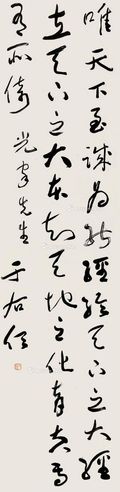 唯天下至誠為能經綸天下之大經
立天下之大本知天地之化育夫焉
有所倚 光宇先生 于右任